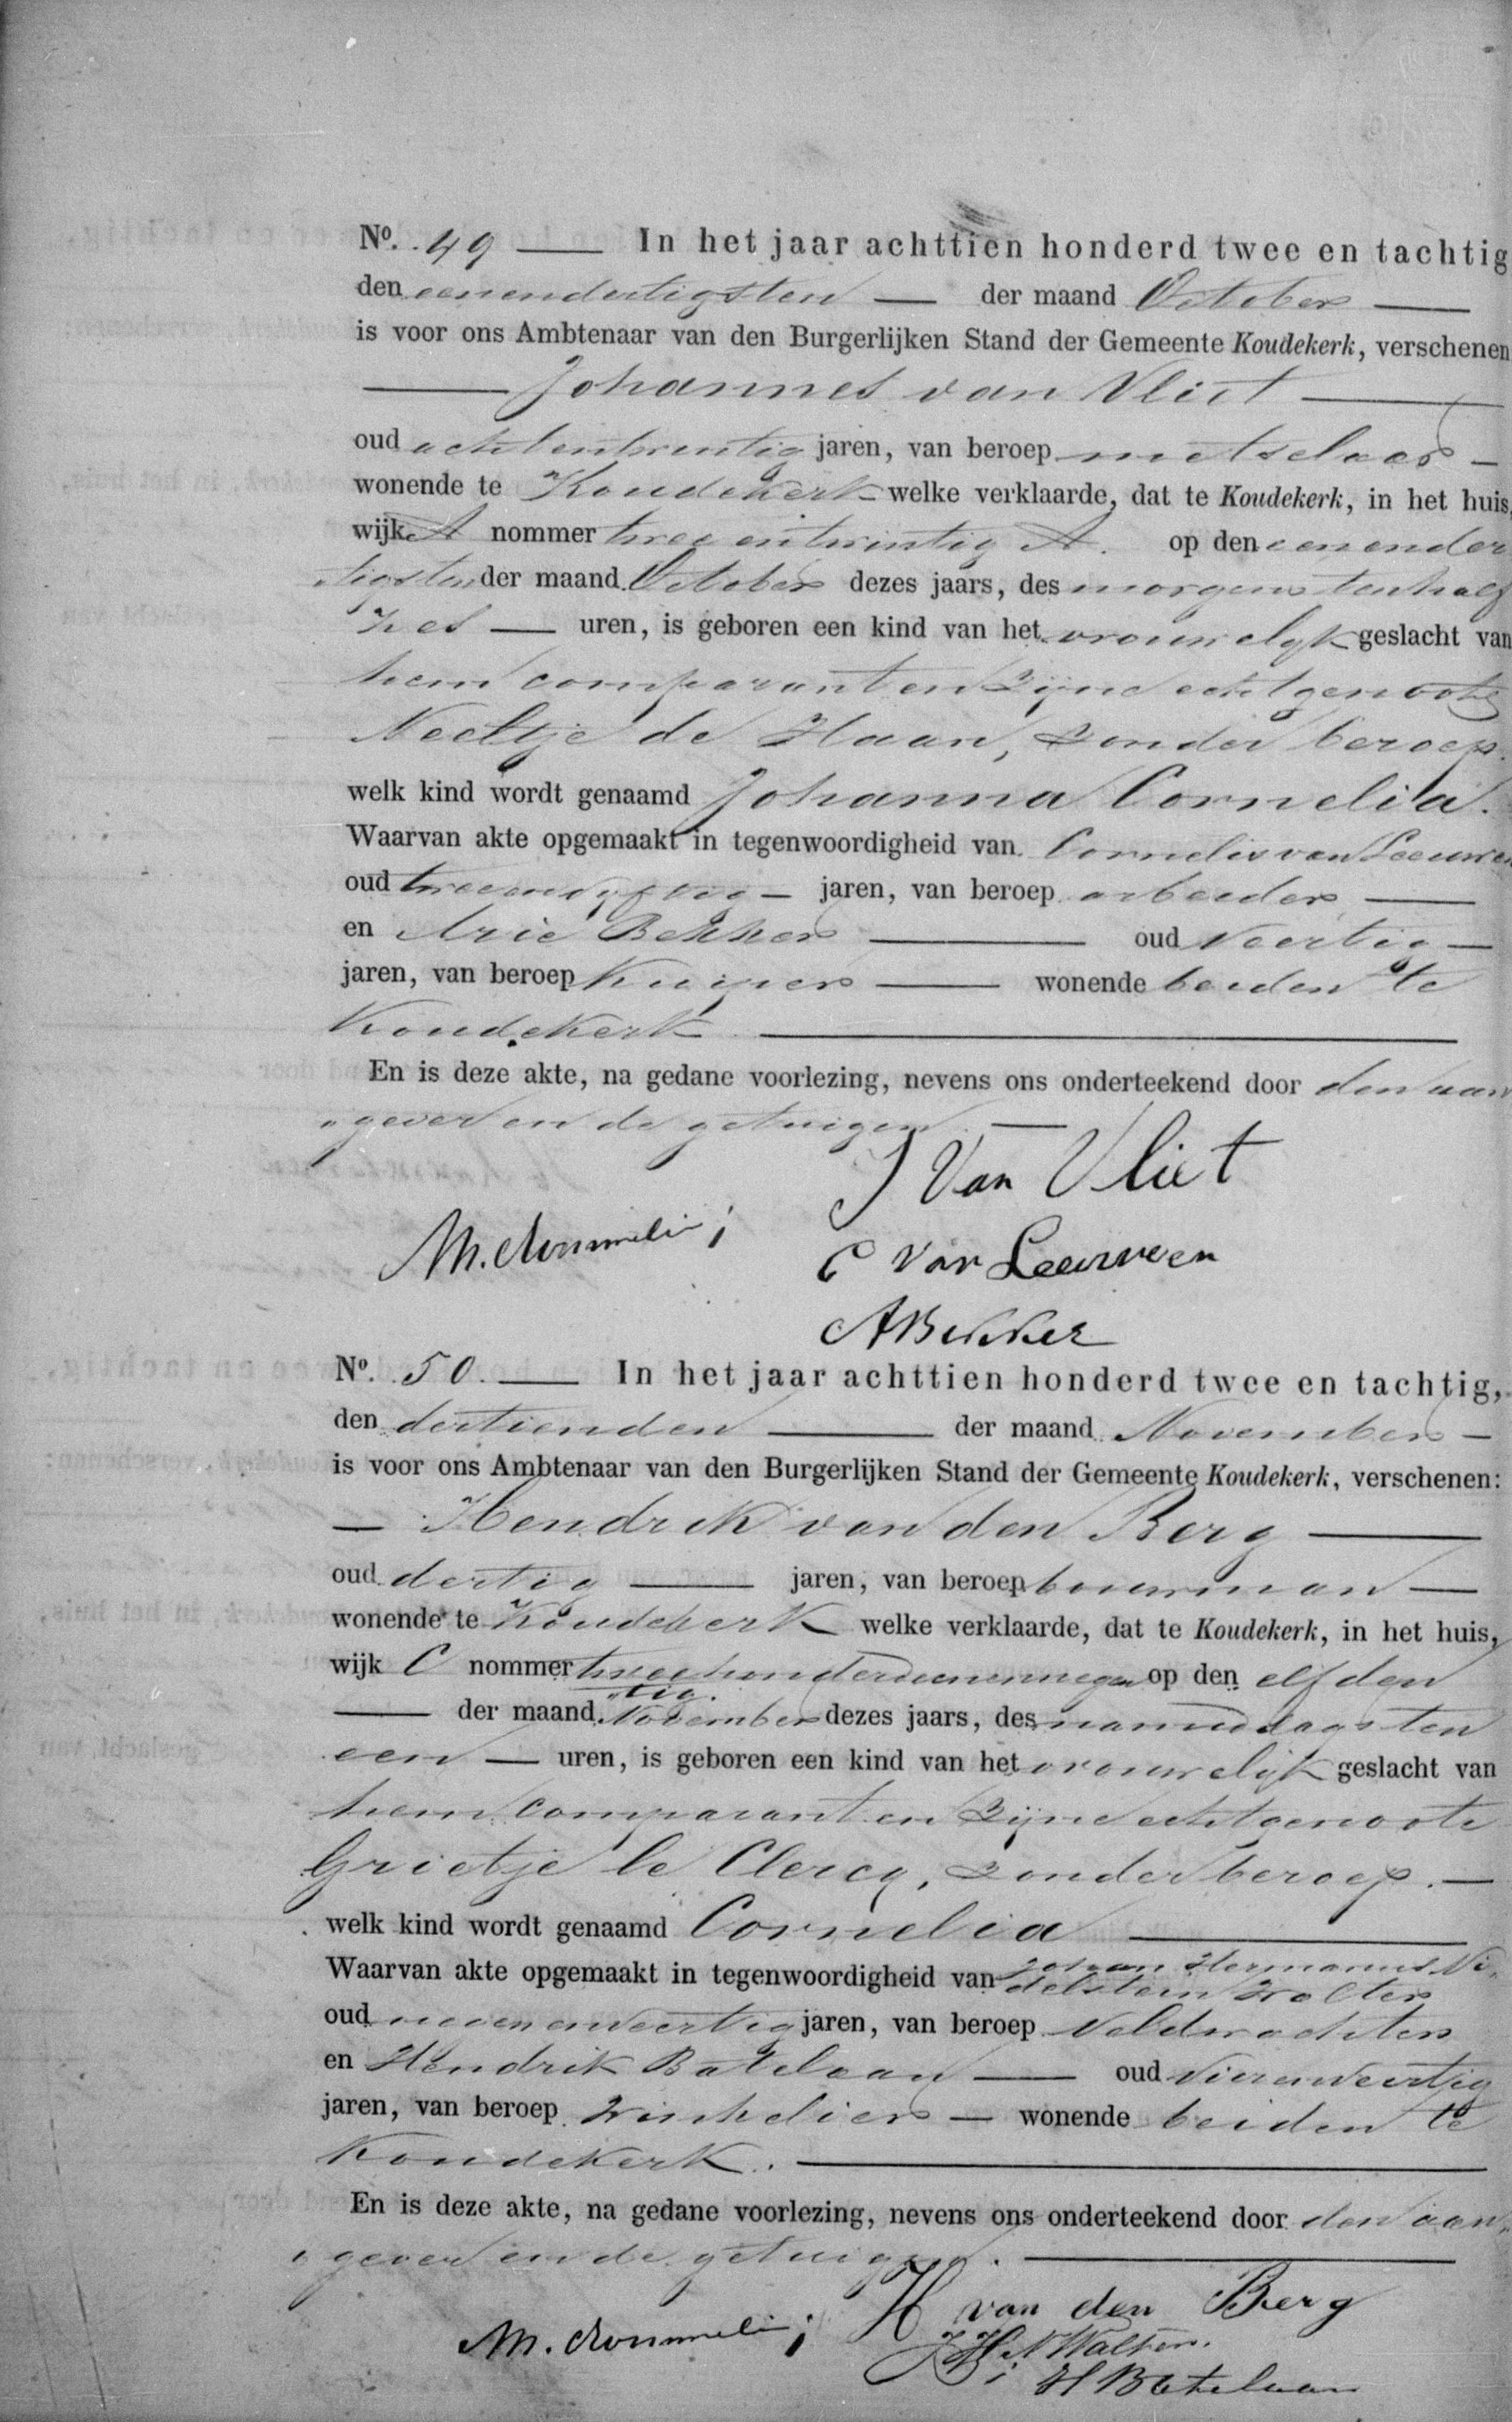 Nº. 49 In het jaar achttien honderd twee en tachtig
den eenendertigsten der maand October
is voor ons Ambtenaar van den Burgerlijken Stand der Gemeente Koudekerk, verschenen
Johannes van Vliet
oud achtentwintig jaren, van beroep metselaar
wonende te Koudekerk welke verklaarde, dat te Koudekerk, in het huis,
wijk A nommer twee entwintig A. op den eenender
tigsten der maand October dezes jaars, des morgens ten half
zes uren, is geboren een kind van het vrouwelijk geslacht van
hem comparant en zijne echtgenoote
Neeltje de Haan, zonder beroep.
welk kind wordt genaamd Johanna Cornelia.
Waarvan akte opgemaakt in tegenwoordigheid van Cornelis van Leeuwen
oud tweeenvijftig jaren, van beroep arbeider
en Arie Bekker oud Veertig
jaren, van beroep Kuiper wonende beiden te
Koudekerk
En is deze akte, na gedane voorlezing, nevens ons onderteekend door den aan
"gever en de getuigen.
J Van Vliet
C van Leeuween
ABekker
Nº. 50. In het jaar achttien honderd twee en tachtig,
den dertienden der maand November
is voor ons Ambtenaar van den Burgerlijken Stand der Gemeente Koudekerk, verschenen:
Hendrik van den Berg
oud dertig jaren, van beroep bouwman
wonende te Koudekerk welke verklaarde, dat te Koudekerk, in het huis,
wijk C nommer tweehonderdeenennegen op den elfden
"tig.
der maand November dezes jaars, des namiddags ten
een uren, is geboren een kind van het vrouwelijk geslacht van
hem comparant en zijne echtgenoote
Grietje le Clercq, zonder beroep.
welk kind wordt genaamd Cornelia
Waarvan akte opgemaakt in tegenwoordigheid van Johan Hermanus Ni,
delstein Wolter
oud negenenveertig jaren, van beroep Veldwachter
en Hendrik Batelaan oud Vierenveertig
jaren, van beroep Winkelier wonende beiden te
Koudekerk.
En is deze akte, na gedane voorlezing, nevens ons onderteekend door den aan,
"gever en de getuigen.
H van den Berg
H Batelaan